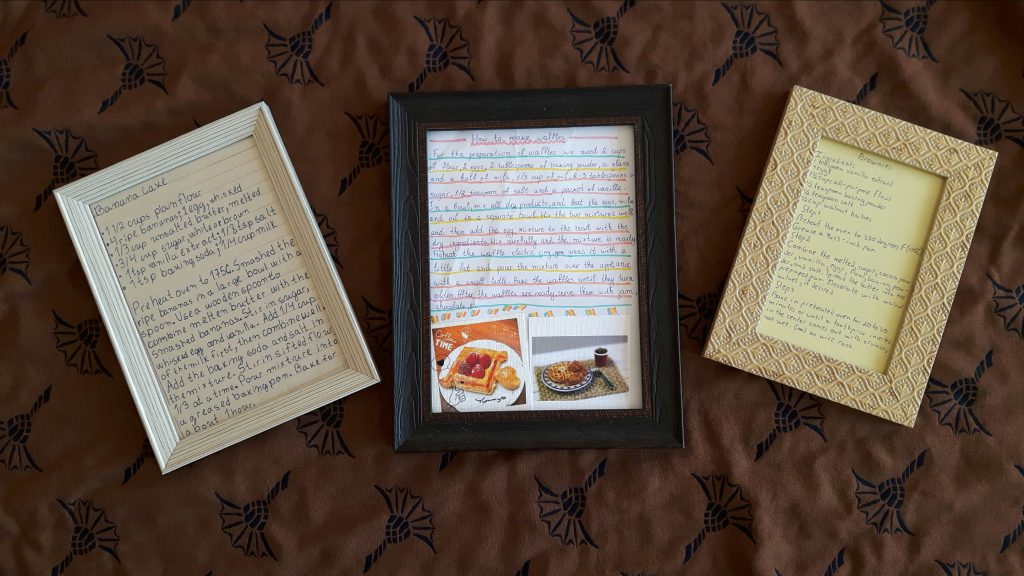 Banana cake
• 1 1/2 cups plain flour
• 4 ripe bananas, 1 egg, whisked
• 1/3 cup unsalted butter, melted
• 3/4 cup sugar, white or brown
• 1tsp vanilla extract, 1/3tsp salt
• 1tsp baking soda, 1/4cup milk
Preheat oven to 175G. Smashed the
ripe bananas in a large bowl with a
spoon. Used wooden spoon to
combine melten butter with the
smashed bananas. Stir in sugar,
whisked egg and vanilla. Add 1/4 cup
of the milk first, then combine well.
Add the baking soda and salt in
the mixture. Stir in sifted flour
1/3 at a time. Pour mixture into
a greased baking pan. Bake for
about 1 hour.
How to make waffles
For the preparation of waffles we need 2 cups
of flour, 2 eggs, 2 tablespoons of baking powder, a glass
and a half of milk, 1/3 cup of oil, 2-3 tablespoons of
sugar, 1/2 teaspoon of salt and a packet of vanilla.
In a bowl, mix all dry products, and beat the eggs, milk
and oil in a separate bowl. Mix the two mixtures well
and then add the egg mixture to the bowl with the
dry ingredients. Mix carefully and the mixture is ready.
Preheat the waffle electric grease it with a
little fat and pour the mixture over the appliance
with a small ladle. Bake the waffles until they turn
golden. After the waffles are ready serve them with jam
Coffee
TIME
Yummy
Brownies
Ingredient:
1 teaspoon vanilla extract
1 egg
1/2 cup all-purpose flour
1/4 teaspoon baking powder
1/4 teaspoon salt
walnut halves
Step 1
Preheat the oven to 350 degrees F
Grease a 9x13-inch pan
Step 2
Combine the melted
if desired
Bake in preheated oven for 20 to 30